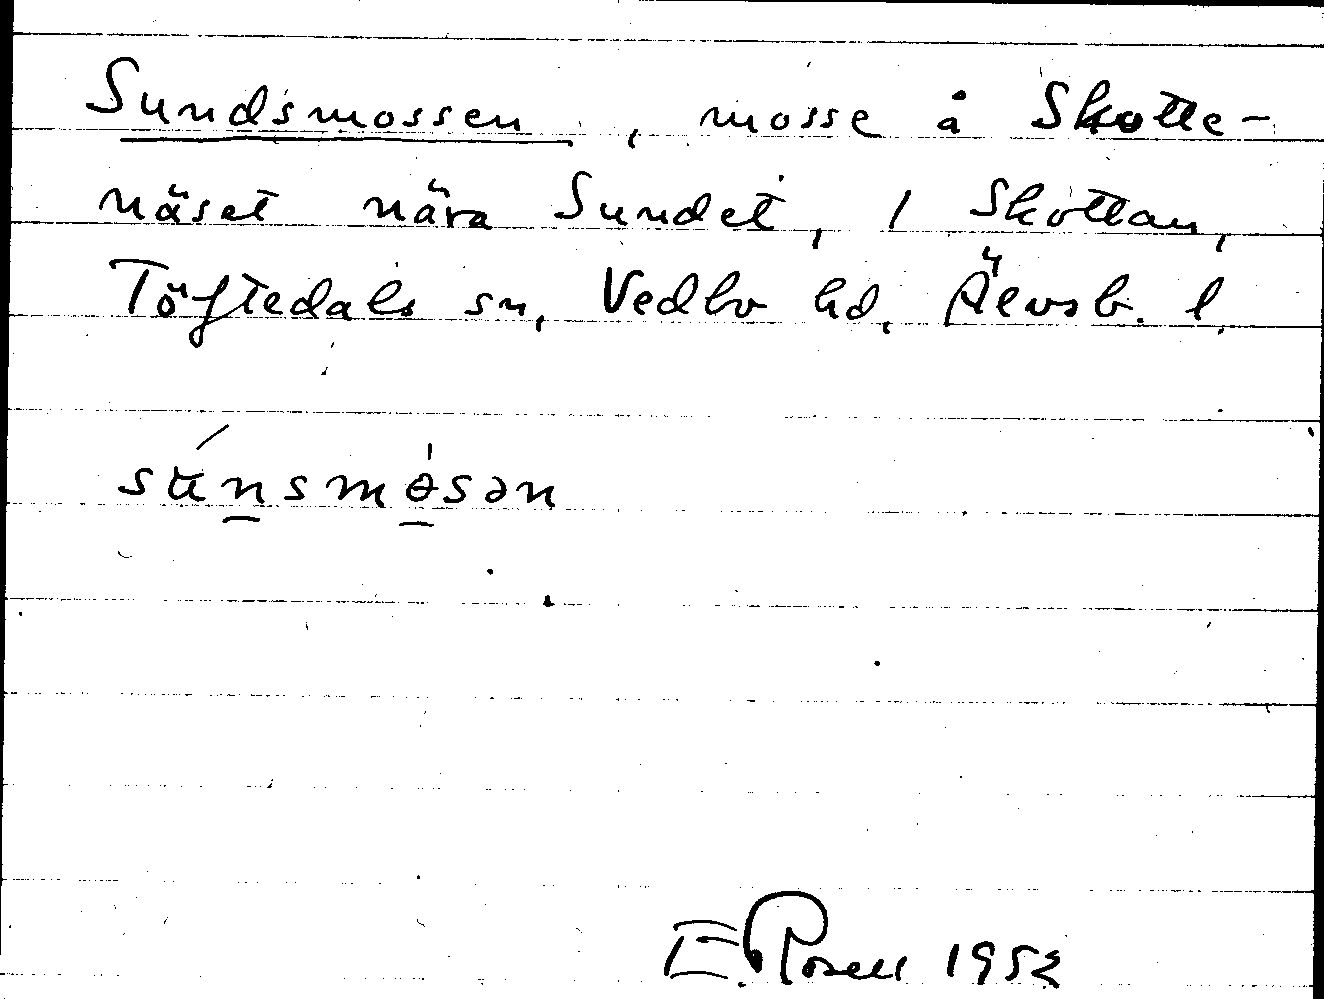 Sundsmossen, mosse å Skotte-
näset nära Sundet, i Skottan,
Töftedals sn, Vedbo hd, Älvsb. l.
sʉ́nsmɵ̀sən
E. Rosell 1952